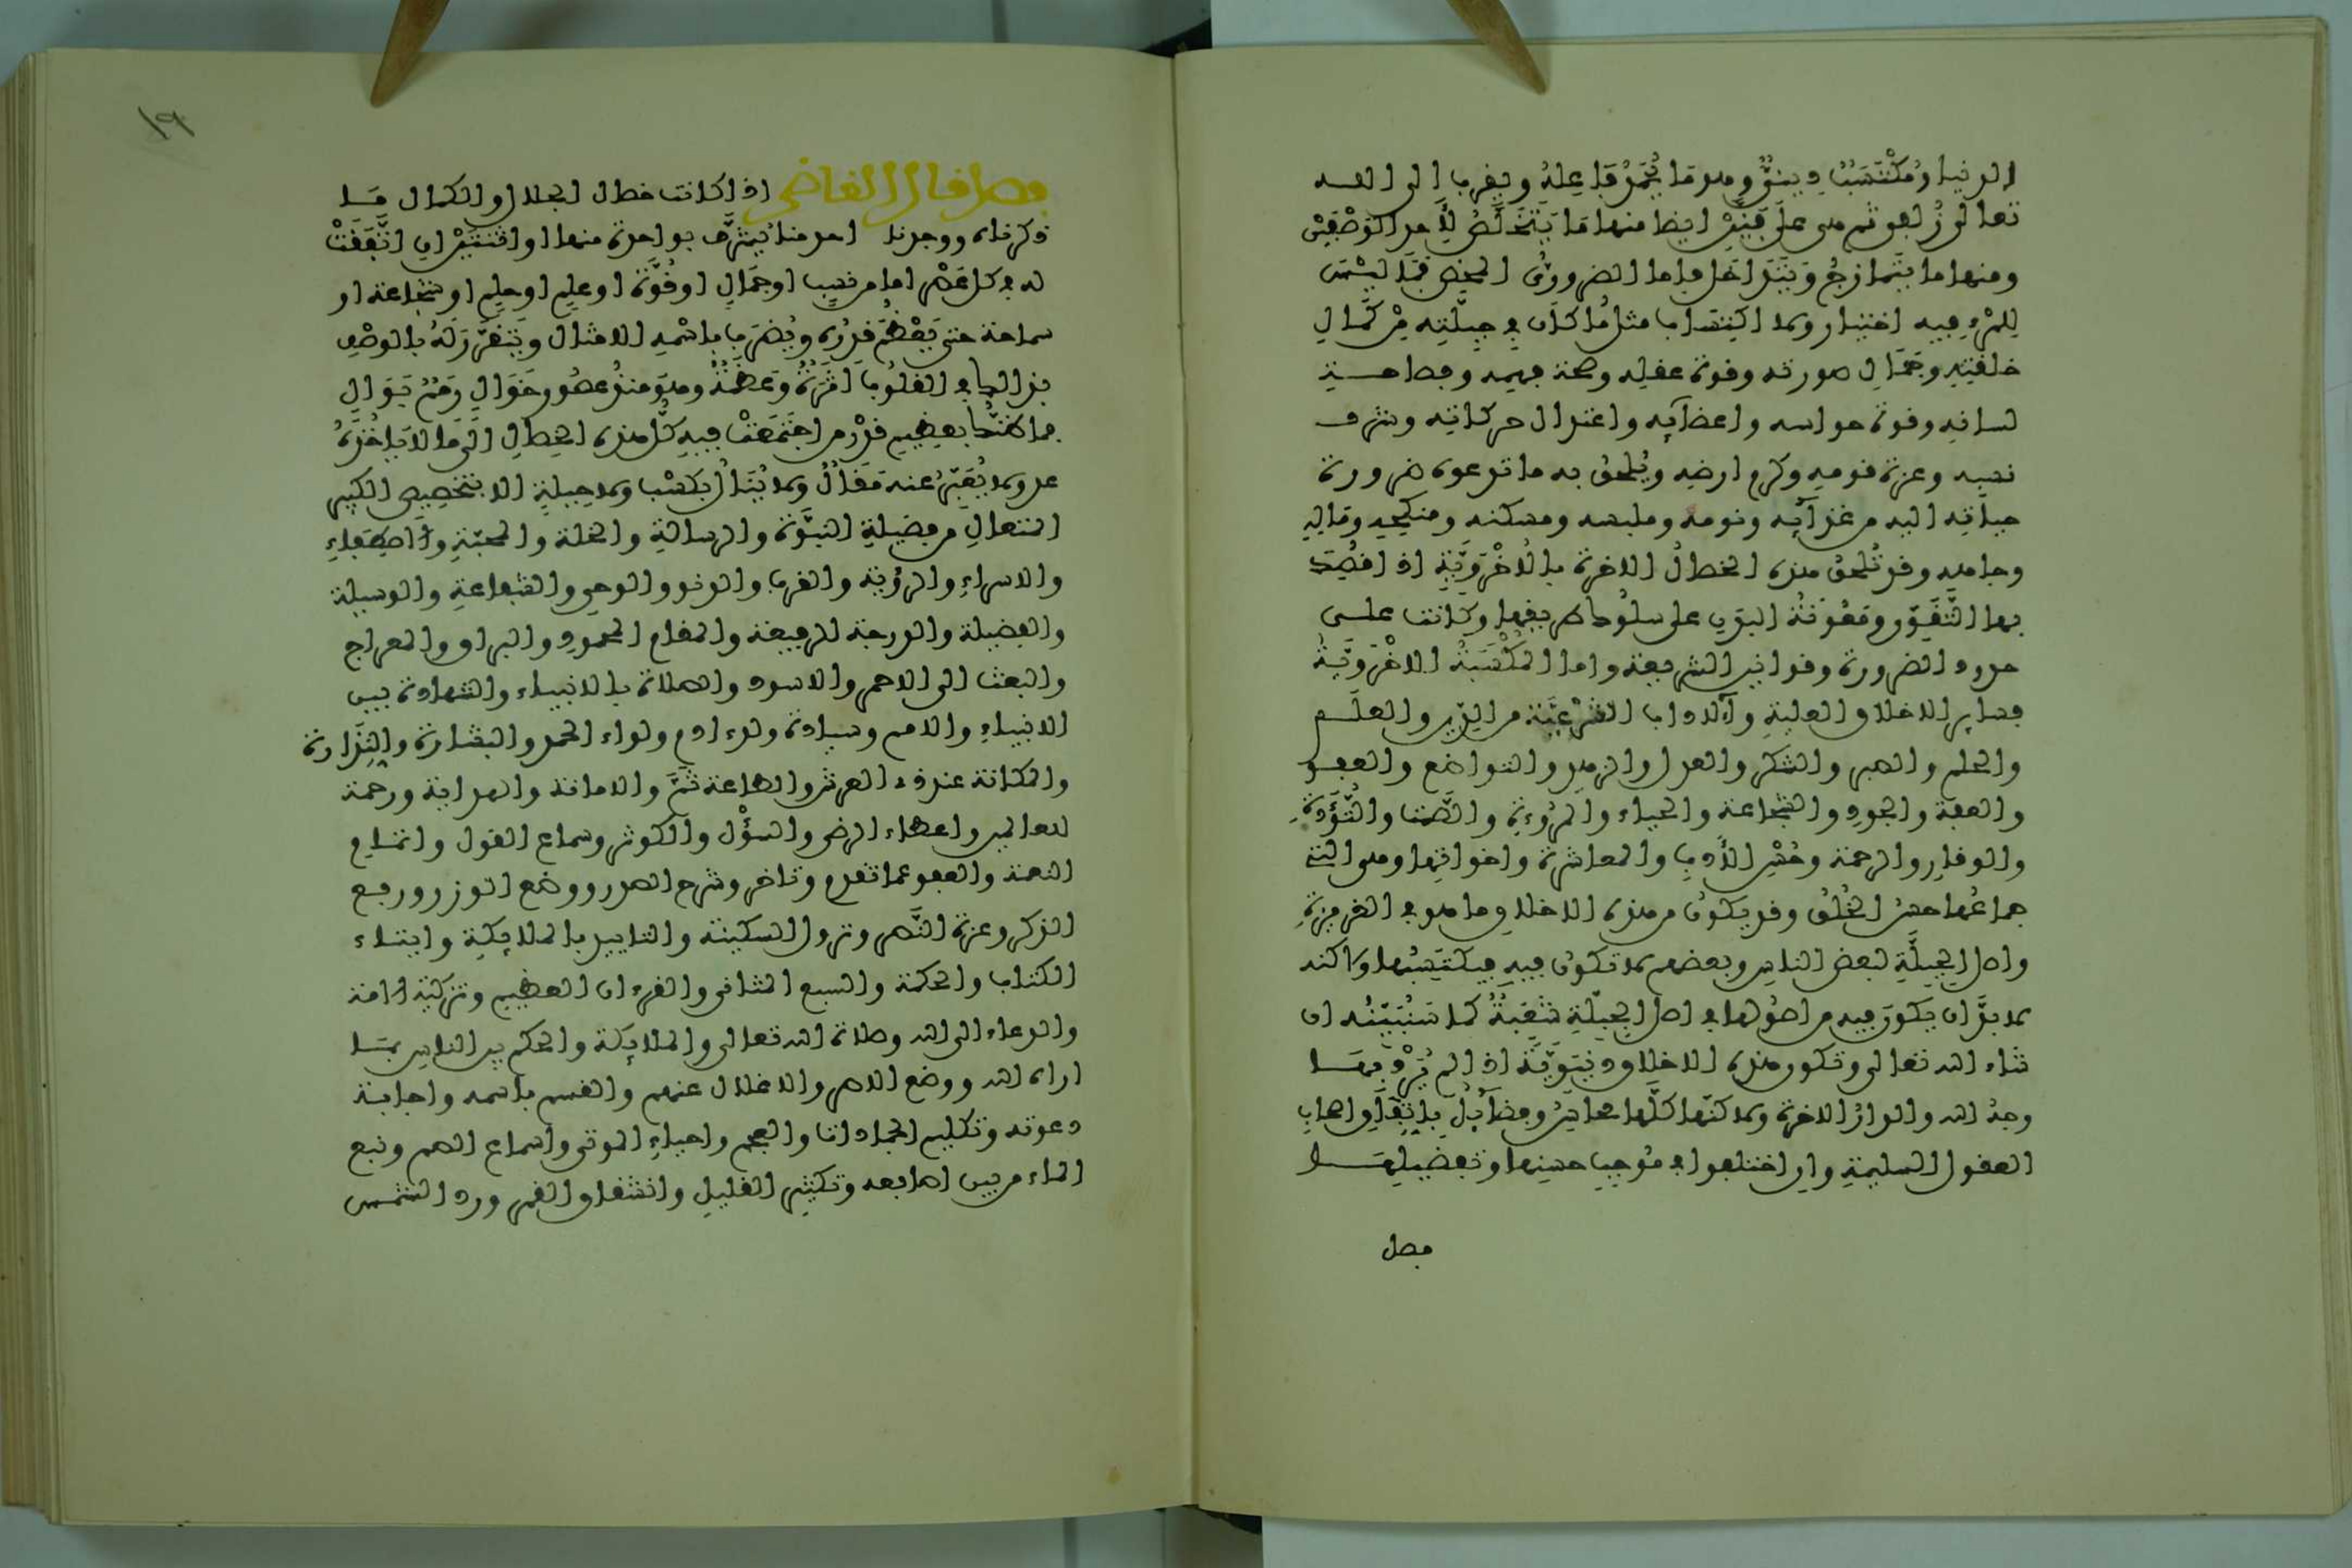 الدنيا ومُكْتَسَبٌ دينيٌّ وهو ما يُحْمَدُ فاعِلهُ ويقرب الى الله
تعالى زلفى ثم هى على فنَّيْن ايضا منها ما يَتَخَلَّصُ لِأَحد الوَصْفَيْنِ
ومنها ما يتَمازجُ وَيَتَدَاخل فاما الضرورىُّ المحض فمَا ليْسَ
لِلْمَرْءِ فِيه اختيار ولا اكتِسَاب مثل ما كان فى جِبِلَّتِه مِنْ كَمَالِ
خلقتِهِ وجَمَالِ صورته وقوة عقلِه وصحة فهمِه وفصاحـة
لسانه وقوة حواسه واعضآئِه واعتدال حركاتِه وشرف
نسبه وعزة قومِهِ وكرم ارضِه ويُلْحَقُ به ما تدعوه ضرورة
حياتِه اليه من غذآئِه ونومه وملبسه ومسكنه ومنكحِه ومَالِهِ
وجاهِهِ وقد تُلْحَقُ هذه الخصالُ الاخرة بالْاُخْرَوِيَّةِ اذا قُصِدَ
بها التَّقْوَى ومعُونَةُ البدن على سلُوك طريقها وكانت علـى
حدود الضرورة وقوانين الشريعة واما المكْتَسَبَةُ الاخْرَوِيَّـةُ
فسائر الاخلاق العليةِ والآداب الشَّرْعِيَّة من الدِّين والعلـم
والحلم والصبر والشكر والعدل والزهد والتواضع والعفـو
والعفة والجود والشجاعة والحياء والمُرُوءةِ والصَّمت والتُّؤَدةِ
والوقار والرحمة وحُسْنِ الأَدبِ والمعاشرة واخواتها وهى التى
جماعُها حسن الخُلُق وقد يكون من هذه الاخلاق ما هو فى الغريزةِ
واصل الجبِلَّةِ لبعض الناس وبعضهم لا تكون فيه فيكتَسِبُها ولاكنه
لا بدَّ ان يَكونَ فيه من اصُولها فى اصل الجبلّةِ شُعْبَةٌ كما سَنُبَيِّنُه ان
شاء الله تعالى وتكون هذه الاخلاق دنيَوِيَّة اذا لم يُرَدْ بهـا
وجهُ الله والدارُ الاخرة ولاكنّها كلُّها محاسِنُ وفضآئِلُ باتِّفَاقِ اصحاب
العقول السليمةِ وان اختلفوا فى مُوجِب حسنِها وتفضيلِهـا
فصل
١٩
فصل قال القاضى اذا كانت خصال الجلال والكمال مَـا
ذكرناه ووجدنا احدنا يُشَرَّف بواحدة منها او اثنتَيْن ان اتَّفَقَتْ
له فى كل عَصْر اما من نسَبٍ او جمَالٍ او قُوَّةٍ او علمٍ او حلمٍ او شجاعة او
سماحة حتى يَعْظُمَ قدرُه ويُضْرَب باسْمِه الامثال ويَتَقَرَّرَ لَهُ بالوصْفِ
بذالك فى القلُوبِ اَثَرَةٌ وَعَظَمَةٌ وهوَ منذُ عصُور خَوَالٍ رِمَمٌ بَوَالٍ
فما ظنُّكَ بعظيم قدْر من اجتَمَعَتْ فيه كُلُّ هذه الخصالِ الَى مَا لا يَاخذُهُ
عد ولا يُعَبِّرُ عنه مَقَالٌ ولا يُنَالُ بكسْب ولا حِيلةٍ الا بتخصِيصِ الكبيرِ
المتعالِ من فضيلةِ النبُوَّة والرسالةِ والخلة والمحبّةِ والاصْطِفَاءِ
والاسراءِ والرؤية والقرب والدنو والوحى والشفاعةِ والوسيلة
والفضيلة والدرجة الرفيعة والمقام المحمودِ والبراق والمعراج
والبعث الى الاحمر والاسود والصلاة بالانبياء والشهادة بين
الانبياءِ والامم وسيادة ولد ءادم ولواء الحمد والبشارة والنِّذَارة
والمكانة عند ذى العرش والطاعة ثَمَّ والامانة والهداية ورحمة
للعالمين واعطاء الرضى والسؤْل والكوثر وسماع القول واتمام
النعمة والعفو عما تقدم وتاخر وشرح الصدر ووضع الوزر ورفع
الذكر وعزة النَّصر ونزول السكينة والتاييد بالملائكةِ وايتاء
الكتاب والحكمة والسبع المثانى والقرءان العظيم وتزكية الامة
والدعاء الى الله وصلاة الله تعالى والملائكة والحكم بين الناس بمـا
اراه الله ووضع الاصر والاغلال عنهم والقسم باسمه واجابة
دعوته وتكليم الجمادات والعجم واحياءِ الموتى واسماع الصم ونبع
الماء من بين اصابعه وتكثير القليل وانشقاق القمر ورد الشمس